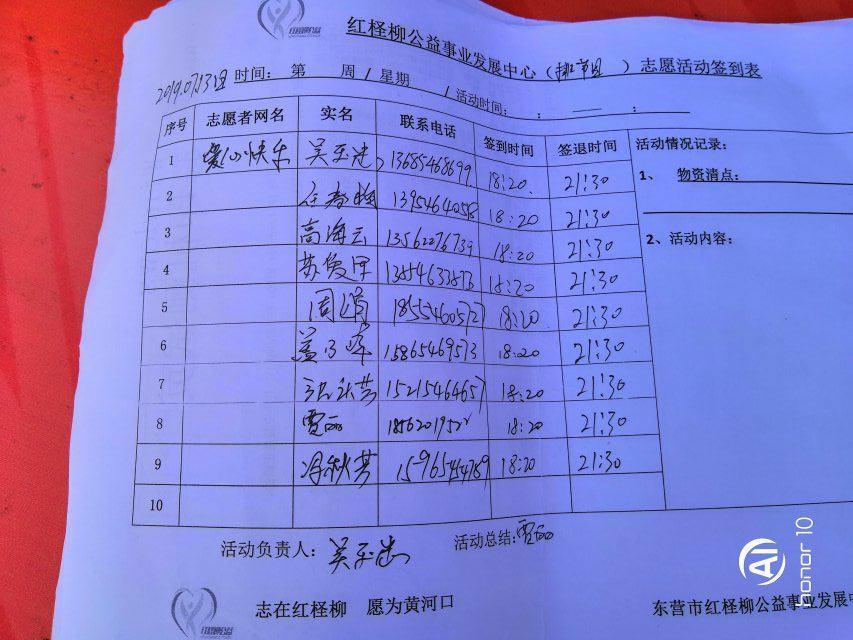 红柽柳公益事业发展中心（ ）志愿活动签到表
时间： 第 周 / 星期 / 活动时间： ： — ：
序号 志愿者网名 实名 联系电话 签到时间 签退时间 活动情况记录：
1 爱心快乐 吴玉忠 13685468699 18:20 21:30
1、 物资清点：
2 18:20 21:30
3 高海云 13562276739 18:20 21:30
2、活动内容：
4 18:20 21:30
5 周娟 18554605727 18:20 21:30
6 15865469573 18:20 21:30
7 15215464657 18:20 21:30
8 贾丽 18:20 21:30
9 冯秋芳 18:20 21:30
10
活动负责人：吴玉忠 活动总结：贾丽
志在红柽柳 愿为黄河口
东营市红柽柳公益事业发展中
AI
honor 10